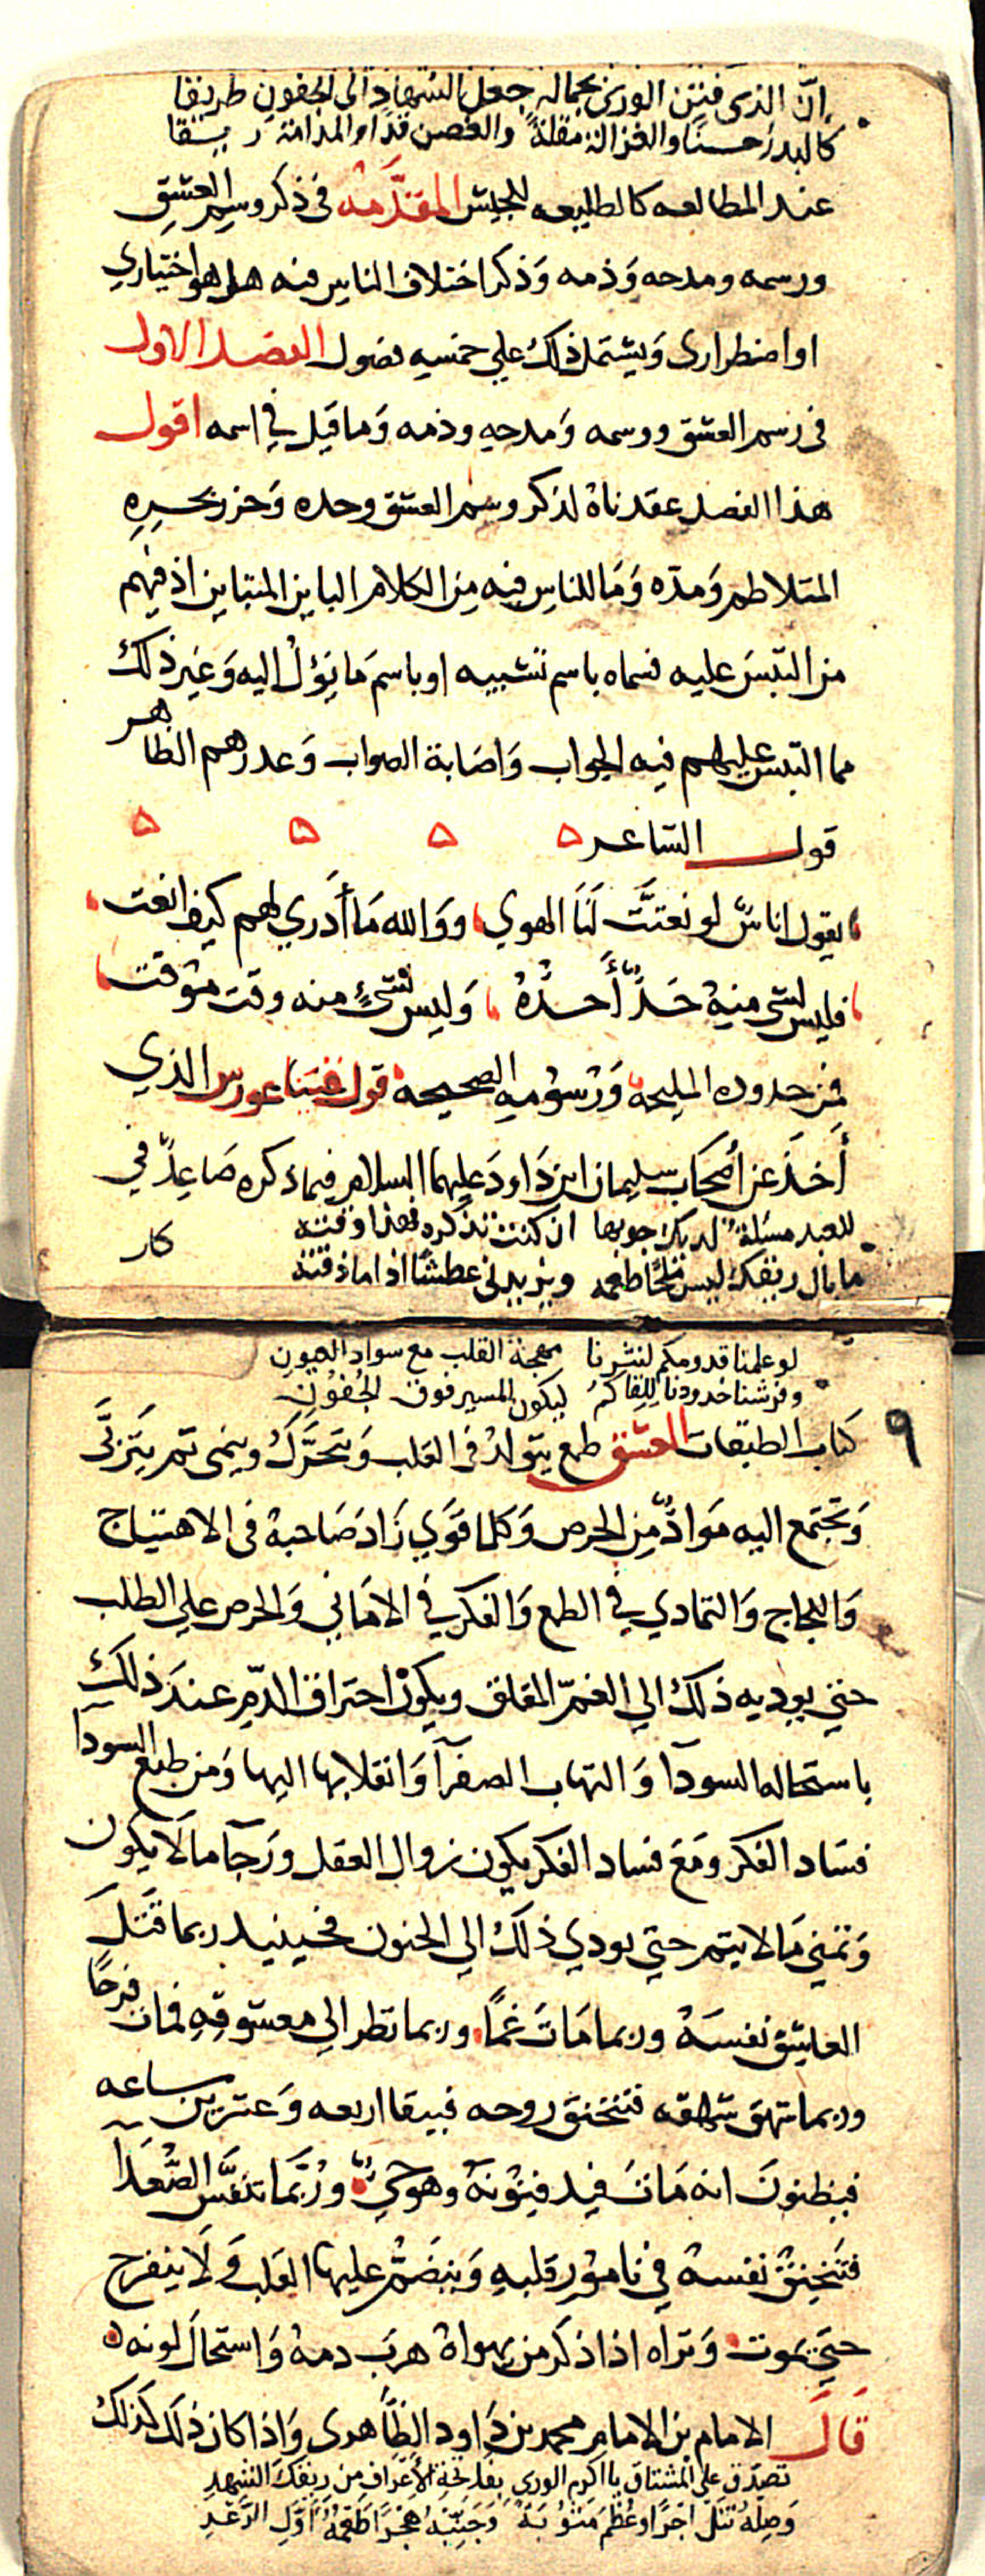 ان الذي فتن الورى بجماله جعل السهاد الى الجفون طريقا
كالبدر حسنا والغزالة مقلة والغصن قدا والمدامة ريقا
عند المطالعه كالطليعه للجيش المقدَّمه في ذكر وسم العشق
ورسمه ومدحه وَذمه وَذكر اختلاف الناس فيه هل هو اختياري
او اضطراري وَيشتمل ذلك علي خمسه فصول الفصل الاول
في رسم العشق ووسمه وَمدحه وذمه وَما قيل في اسمه اقول
هذا الفصل عقدناهُ لذكر وسم العشق وحده وَجزر بحره
المتلاطم وَمدّه وَمَا للناس فيه مِن الكلام الباين المتباين اذ فيهم
من التبسَ عليه فسماه باسم تشبيه او باسم مَا يَؤلُ اليه وَغير ذلك
مما التبس عليهم فيه الجواب وَاصَابة الصواب وَعدرهم الظاهر
قول الشاعر ه ه ه ه
يقول اناسٌ لو نعتَّ لنَا الهوي ووَالله مَا أدري لهم كيف انعت
فليس لشئ منهُ حَدٌّ أَحدُّهُ وَليس لشيٍ منه وقت موقت
فمن حدوده المليحه وَرُسُومه الصحيحه قول فيثاعورس الذي
أَخذَ عن أصحَاب سليمان ابن دَاود عليهما السلام فيما ذكره صَاعِدٌ في
للعبد مسئلة لديك جوبها ان كنت تذكره فهذا وقته
ما بال ريقك ليس ملحًا طعمه ويزيدني عطشًا اذا ما ذقته
كار
لو علمنا قدومكم لنثرنا مهجة القلب مع سواد العيون
وفرشنا خدودنا للقاكم ليكون المسير فوق الجُفون
٩
كتاب الطبقات العشق طمع يتولدُ في القلب وَيتحَرَّكُ وينمى ثم يَتربَّى
وَتجتمع اليه مَوادٌّ مِن الحرص وَكلما قوَي زَادَ صَاحبهُ في الاهتياج
وَاللجاج وَالتمادي في الطمع وَالفكر في الامَاني وَالحرص علي الطلب
حتي يوديه ذلك الي الغمّ المقلق ويكون احتراق الدّم عندَ ذلك
باستحالة السودآ وَالتهاب الصفرآ وَانقلابها اليها وَمن طبع السودآ
فسَاد الفكر ومَعَ فساد الفكر يكون زوال العقل ورَجآ ما لَا يكون
وَتمني مَا لا يتم حتي يودي ذلك الي الجنون فحينيد ربما قتَلَ
العاشق نفسَهُ وربما مَاتَ غمًا وربما نظر الي معشوقه فمات فرحًا
وربما شهق شهقه فتختنق روحه فيبقا اربعه وَعشرين ساعه
فيظنونَ انه مَاتَ فيدفنُونهُ وهو حيٌّ ورُبَّمَا تنفَّس الصُّعَدآ
فتَختنق نفسهُ في نامُور قلبهِ وَينضَمُّ عليها القلب وَلَا ينفرج
حتي يموت وَتراه اذا ذكر من يهواهُ هربَ دمهُ وَاستحالَ لونه ه
قالَ الامام بن الامام محمد بن دَاود الظَّاهري وَاذا كان ذلك كذلك
تصدّق علي المُشتاق يا اكرم الوري بفاتحة الأعراف من ريقك الشهد
وَصِلهُ تنَل اجرًا وعُظم مَثوُبَة وَجَنِّبْهُ هَجْرًا طَعْمُهُ أوَّل الرَّعْدِ